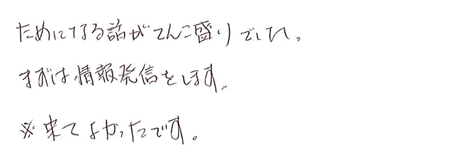 ためになる話がてんこ盛りでした。
まずは情報発信をします。
※来てよかったです。